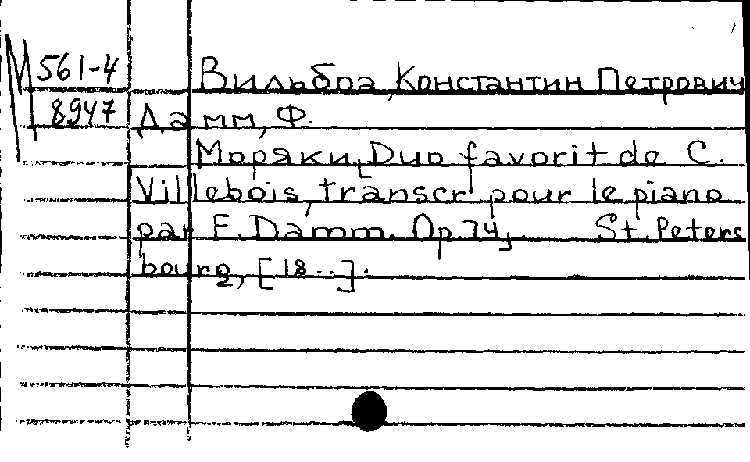 М 561-4 Вильбоа, Константин Петрович
8947 Дамм, Ф.
Моряки, [Duo favorit de C.
Villebois, transcr. pour le piano
par F. Damm. Op. 74, St. Peters
bourg, [18..].